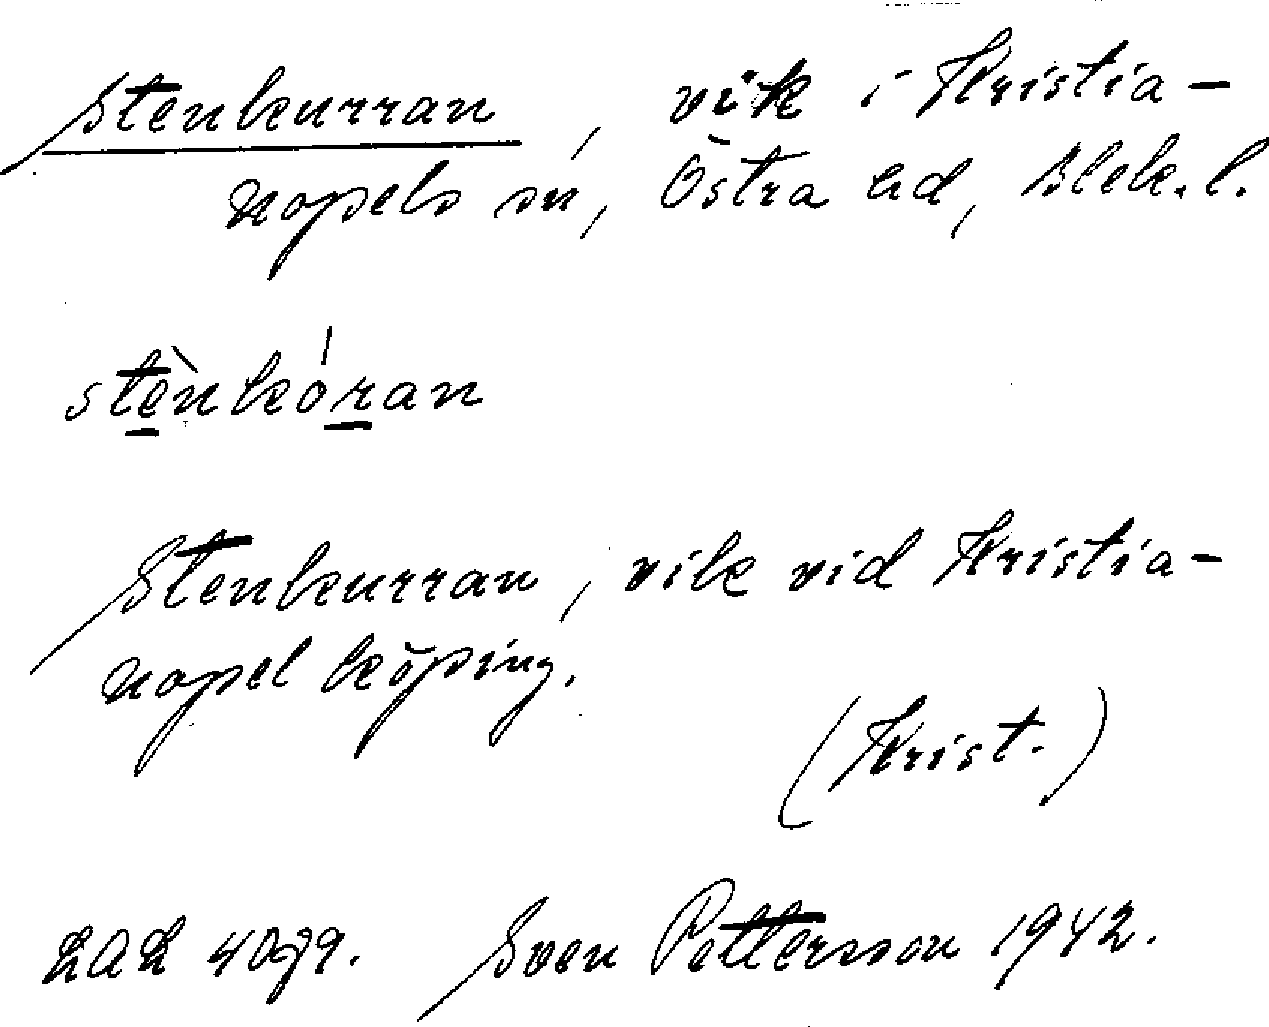 Stenkurran, vik i Kristia-
nopels sn, Östra hd, Blek. l.
stènkóran
Stenkurran, vik vid Kristia-
nopel köping.
(Krist.)
LAL Sven Pettersson 1942.